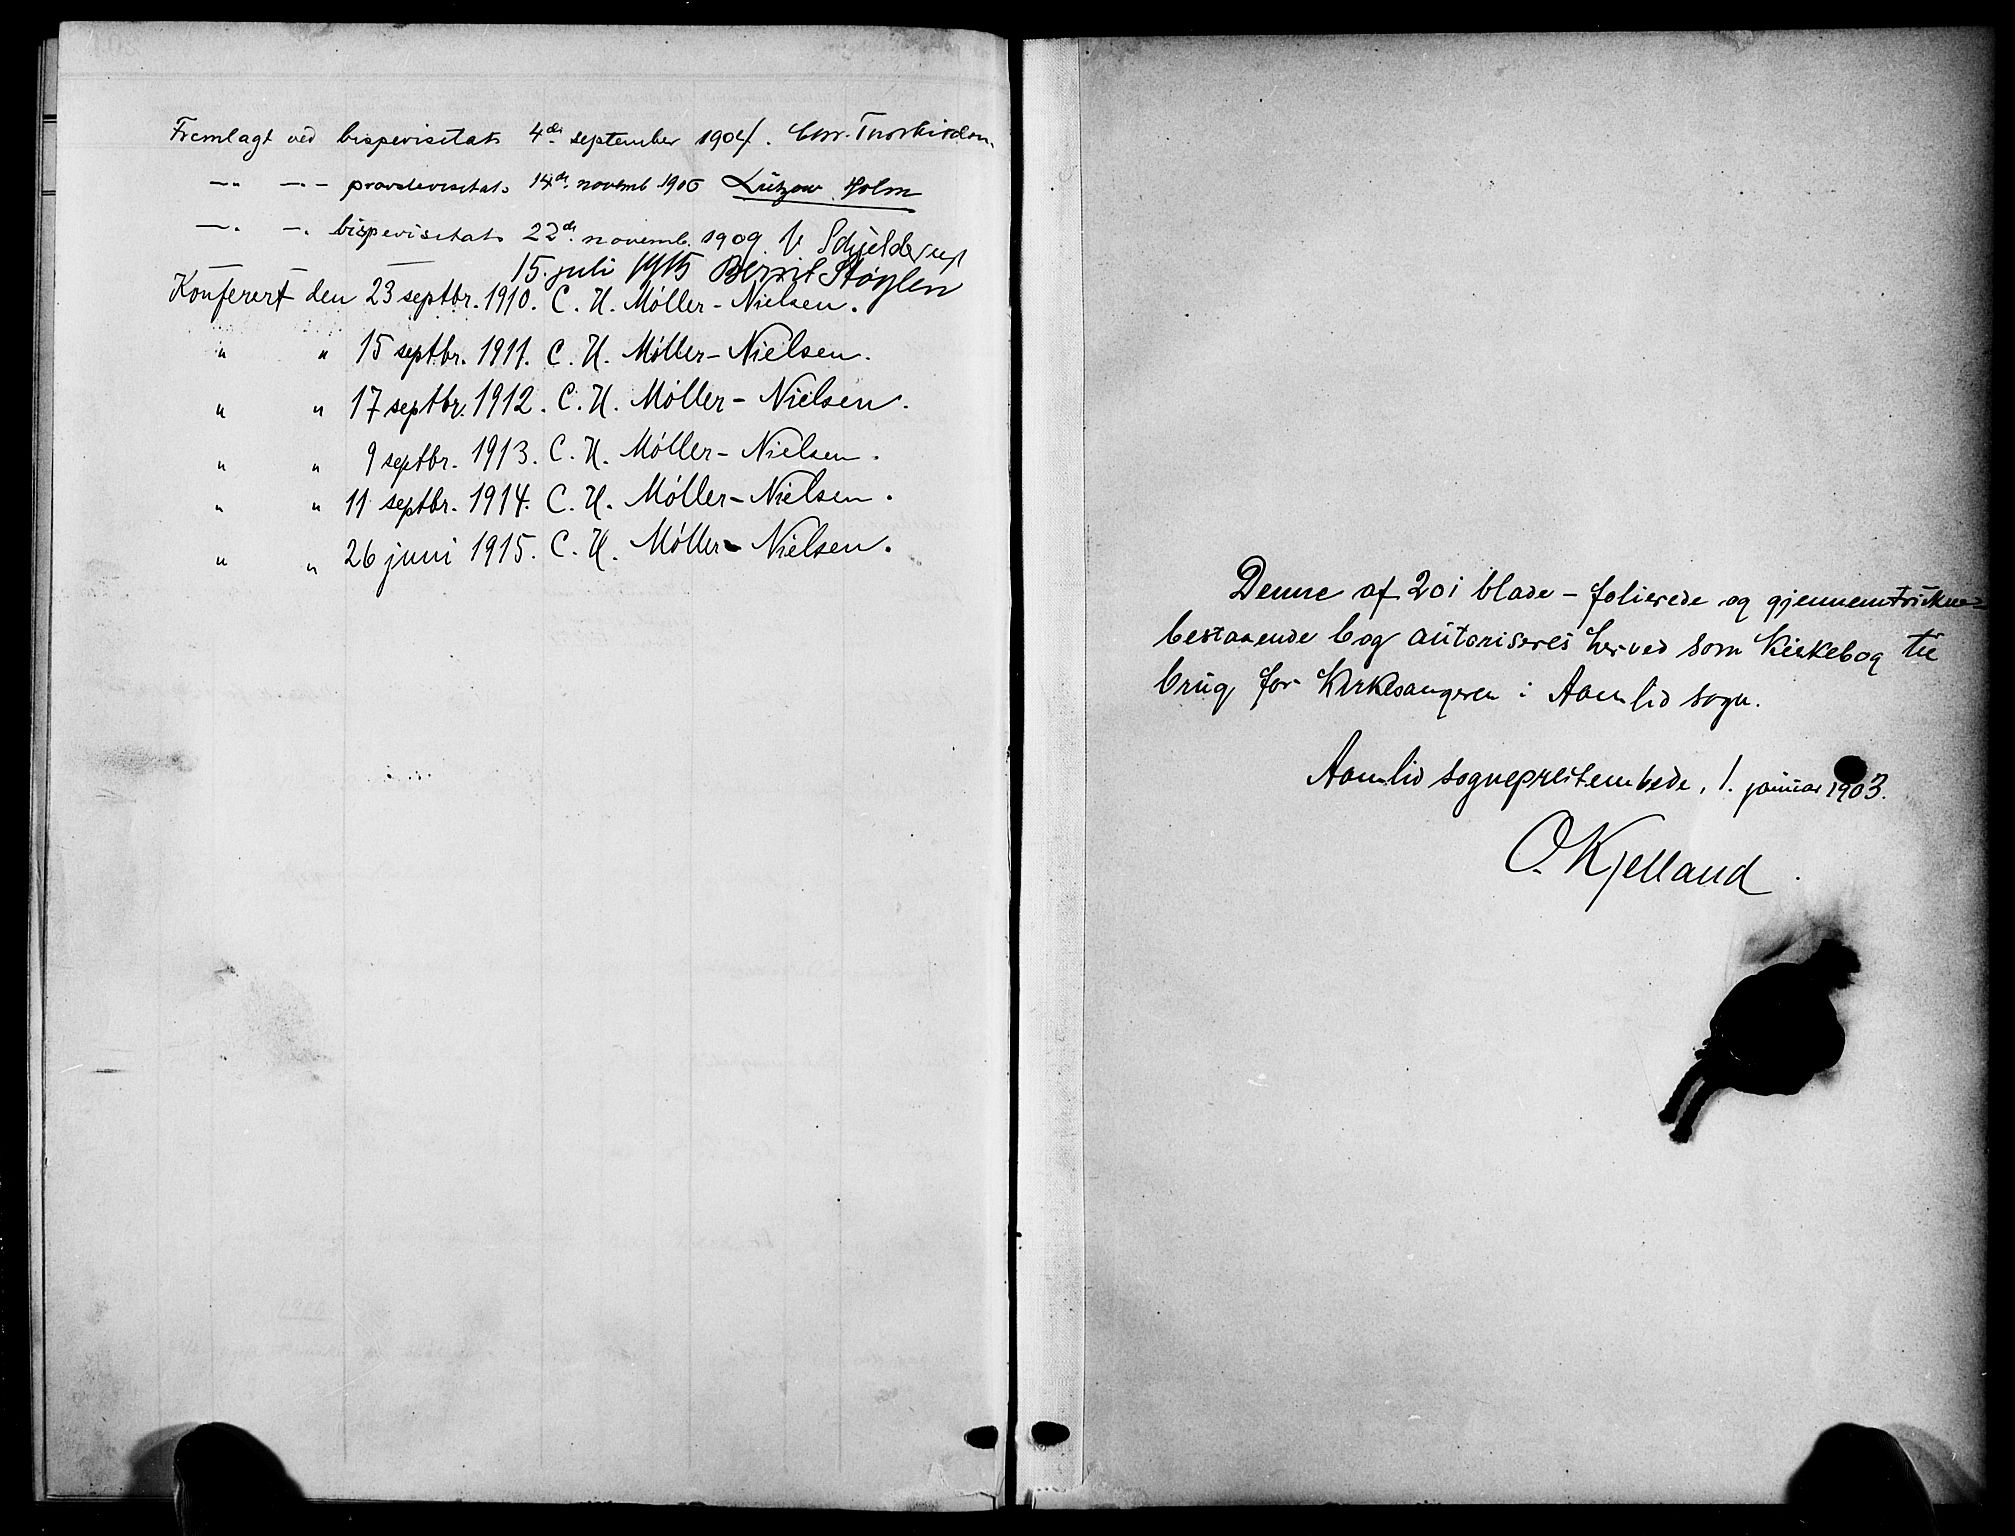 Fremlagt ved bispevisitats 4de september 1904. Chr. Thorkildsen.
—"— —"— provstevisitats 14de novemb 1906 Lützow Holm
—"— —"— bispevisitats 22de novemb. 1909 Schjelderup
— — 15. juli 1915 Bernt Støylen
Konferert den 23 septbr. 1910. C. H. Møller-Nielsen.
" " 15 septbr. 1911. C. H. Møller-Nielsen.
" " 17 septbr. 1912. C. H. Møller-Nielsen.
" " 9 septbr. 1913. C. H. Møller-Nielsen.
" " 11 septbr. 1914. C. H. Møller-Nielsen.
" " 26 juni 1915. C. H. Møller-Nielsen.
Denne af 201 blade – folierede og gjennemtrukne –
bestaaende bog autoriseres herved som kirkebog til
brug for kirkesangeren i Aamlid sogn.
Aamlid sogneprestembede, 1. januar 1903.
O. Kjelland